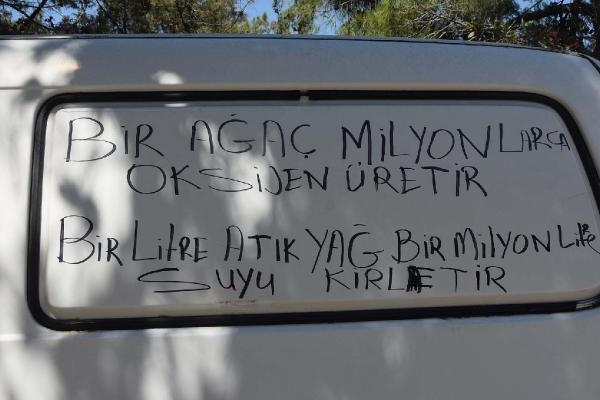 BİR AĞAÇ MİLYONLARCA
OKSİJEN ÜRETİR
BİR LİtRE ATIK YAĞ BİR MİLYON LitRe
SUYU KİRLETİR